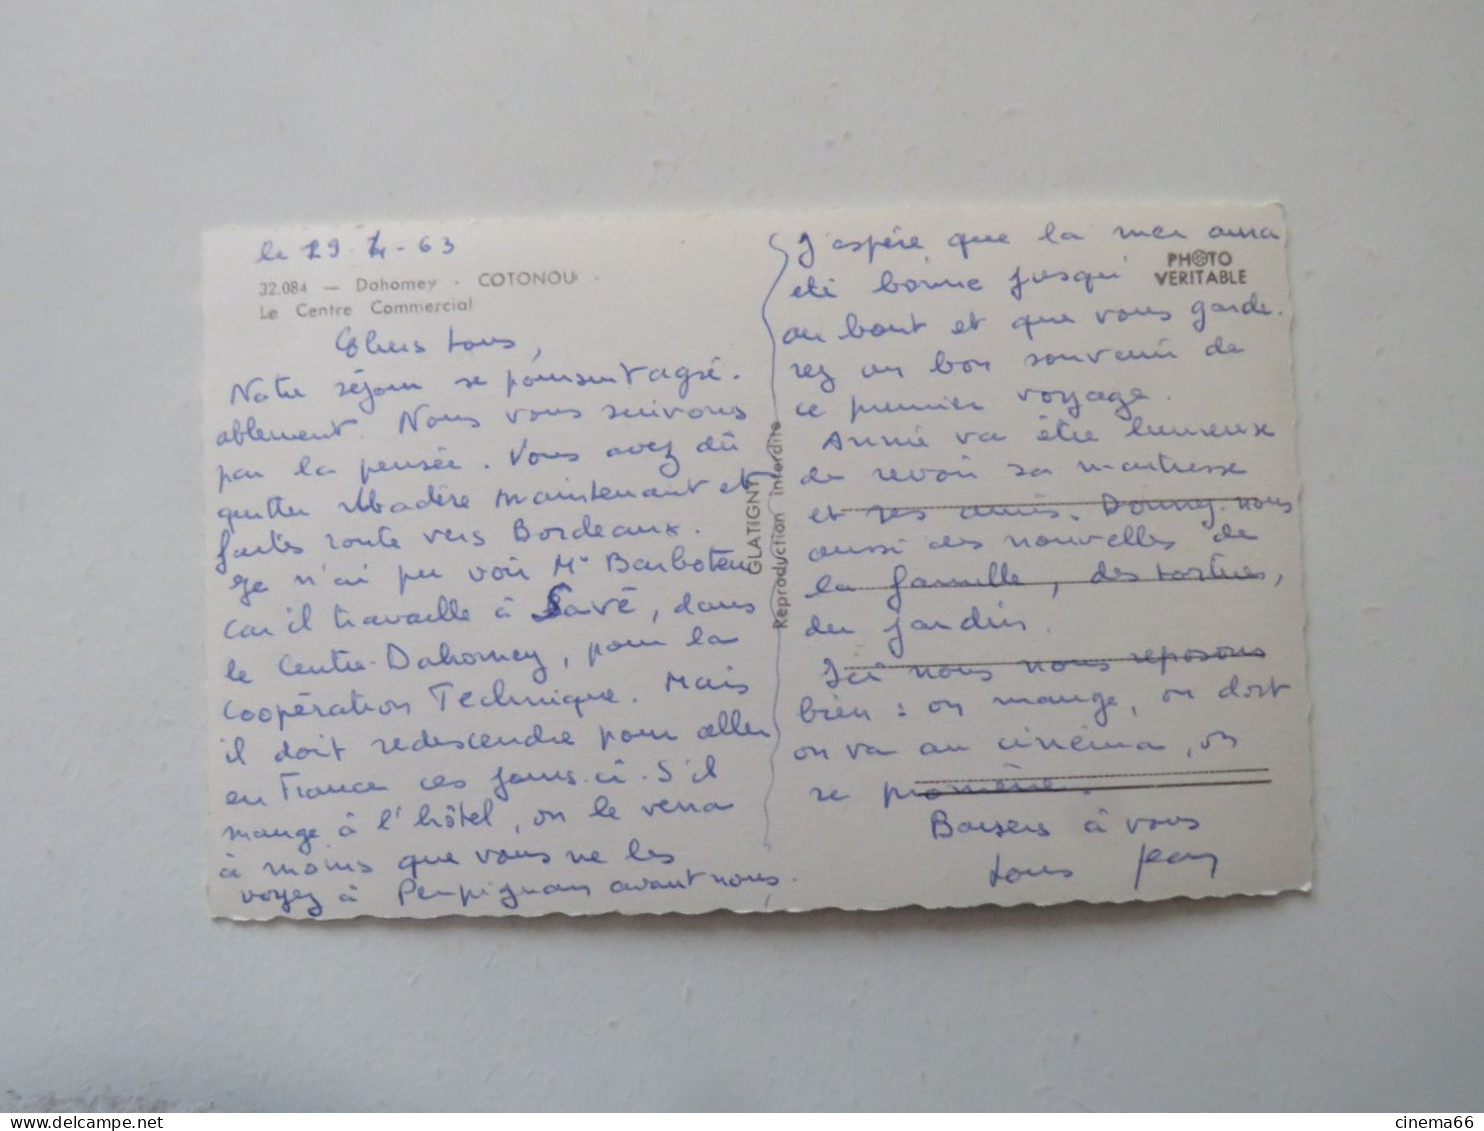 le 19-4-63
32.084 — Dahomey - COTONOU
Le Centre Commercial
Chers tous,
Notre séjour se poursuit agré-
ablement. Nous vous suivons
par la pensée. Vous avez dû
quitter Madère maintenant et
faites route vers Bordeaux.
Je n'ai pu voir Mr Barboteu
car il travaille à Savé, dans
le Centre-Dahomey, pour la
Coopération Technique. Mais
il doit redescendre pour aller
en France ces jours-ci. S'il
mange à l'hôtel, on le verra
à moins que vous ne les
voyez à Perpignan avant nous.
GLATIGNY
Reproduction interdite
PHOTO
VERITABLE
J'espère que la mer aura
été bonne jusqu'
au bout et que vous garde-
rez un bon souvenir de
ce premier voyage.
Annie va être heureuse
de revoir sa maîtresse
et ses amis. Donnez-nous
aussi des nouvelles de
la famille, des tortues,
du jardin.
Ici nous nous reposons
bien : on mange, on dort
on va au cinéma, on
se promène.
Baisers à vous
tous Jean
cinema66